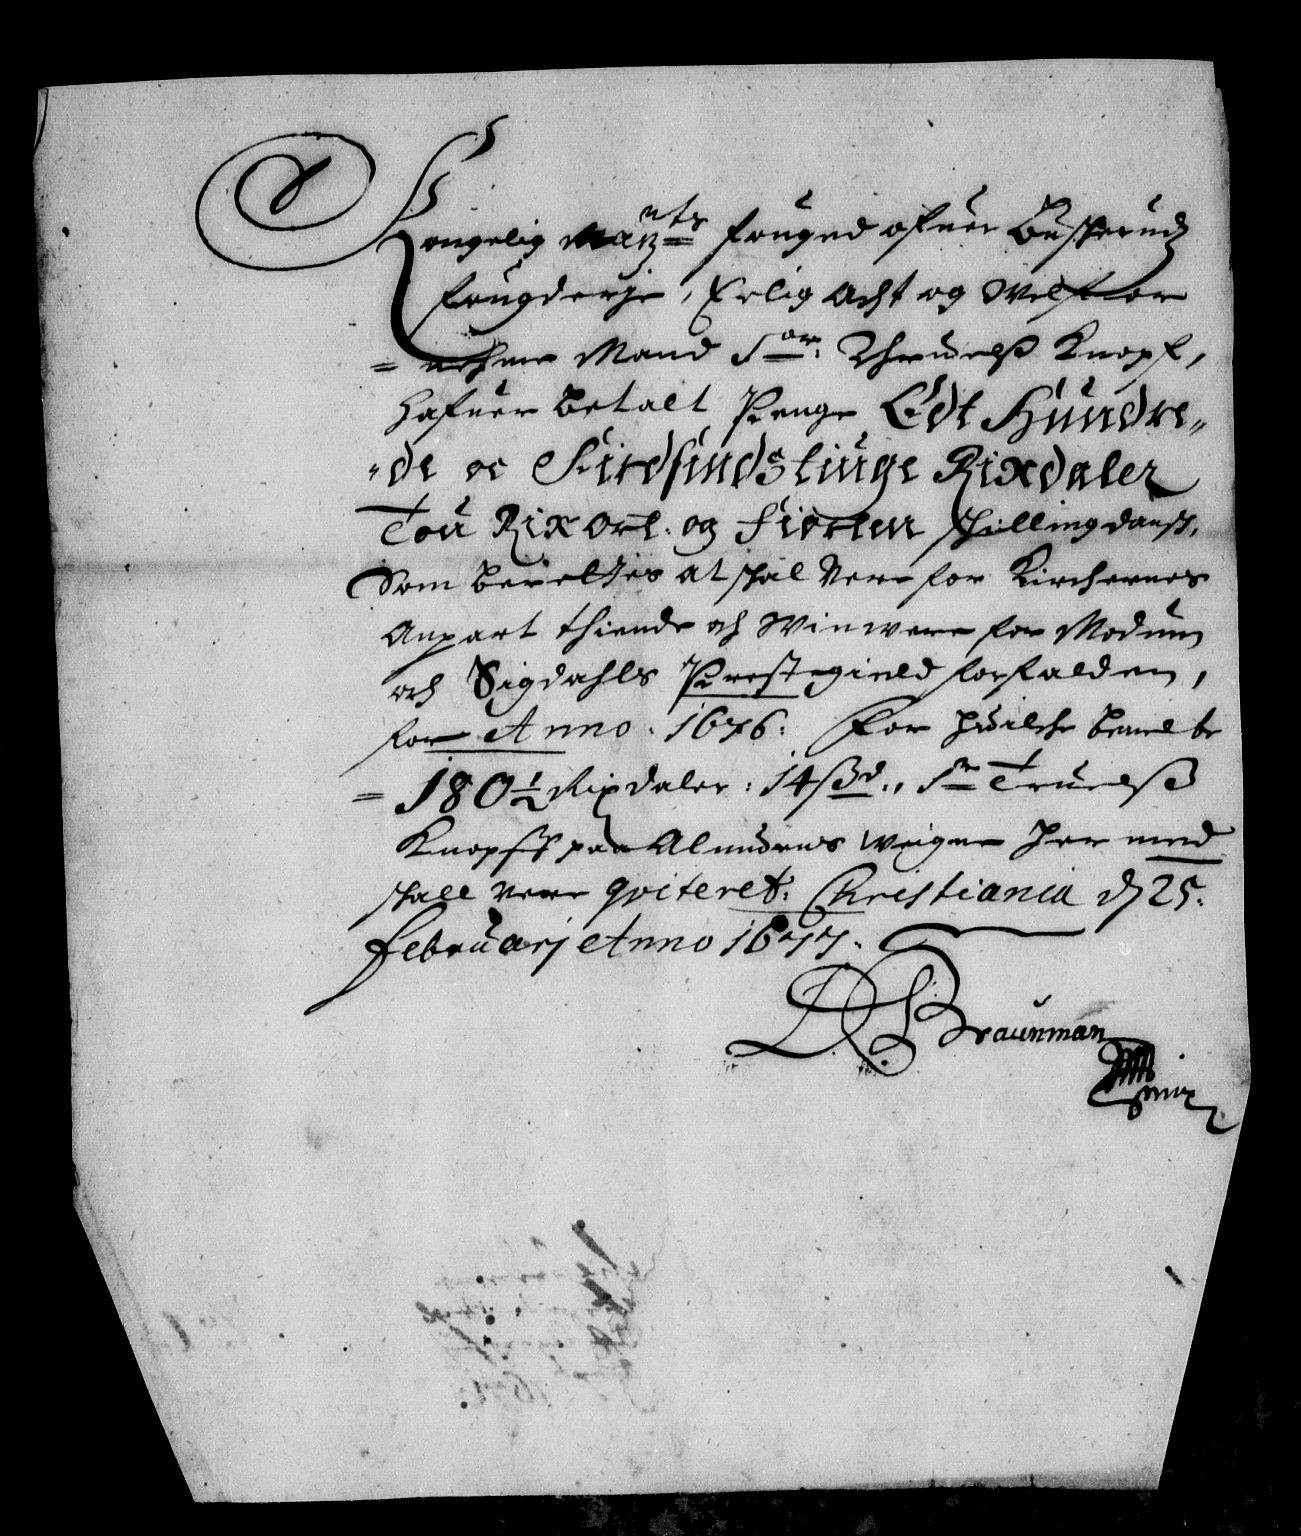 Kongelig Maÿ:ts fouged ofuer Buscheruds
fougderje, Erlig Acht og Welfor
= nehme Mand Sor: Thruelß Knopf,
hafuer betalt Penge Edt Hundre,,
,,de oc Firdsindstiuge Rixdaler
Tou Rixort. og Fiorten schilling dansch,
Som bereltes at schal vere for Kirchernes
Anpart thiende och Winwere for Modum
och Sigdahls Prestegield forfalden,
for Anno. 1676: for huilche benelte
= 180½ Rixdaler: 14 ß d., Sr Truelß
Knopff paa Almuens weigne her med
schall vere qviteret: Christiania dj 25.
Februarj Anno 1677.
D. Braunman
mp